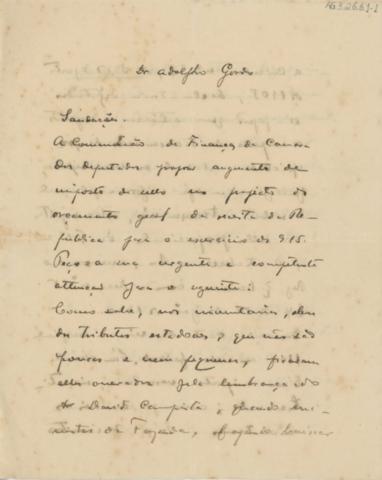 AG3.2.6.61-1
Dr Adolpho Gordo
Saudações.
A Commissão de Finanças da Camara
dos Deputados propoz augmento de
imposto de sello no projecto do
orçamento geral da receita da Re-
publica para o exercicio de 915.
Peço a sua urgente e competente
attenção para o seguinte:
Como sabe, nos inventarios, alem
dos tributos estadoaes, que não são
poucos e nem pequenos, ficaram
elles onerados pela lembrança do
Dr David Campista, quando mi-
nistro da Fazenda,